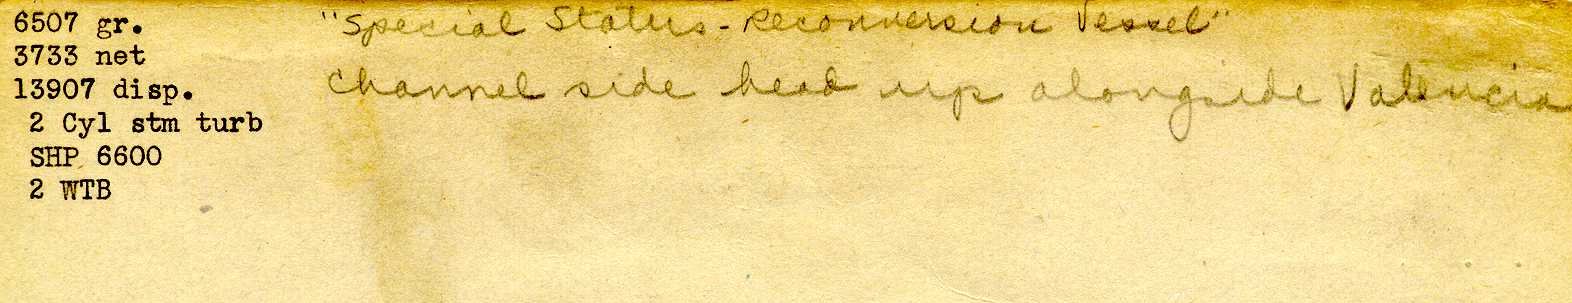 6507 gr.
"Special Status - Reconversion Vessel"
3733 net
13907 disp.
channel side head up alongside Valencia
2 Cyl stm turb
SHP 6600
2 WTB